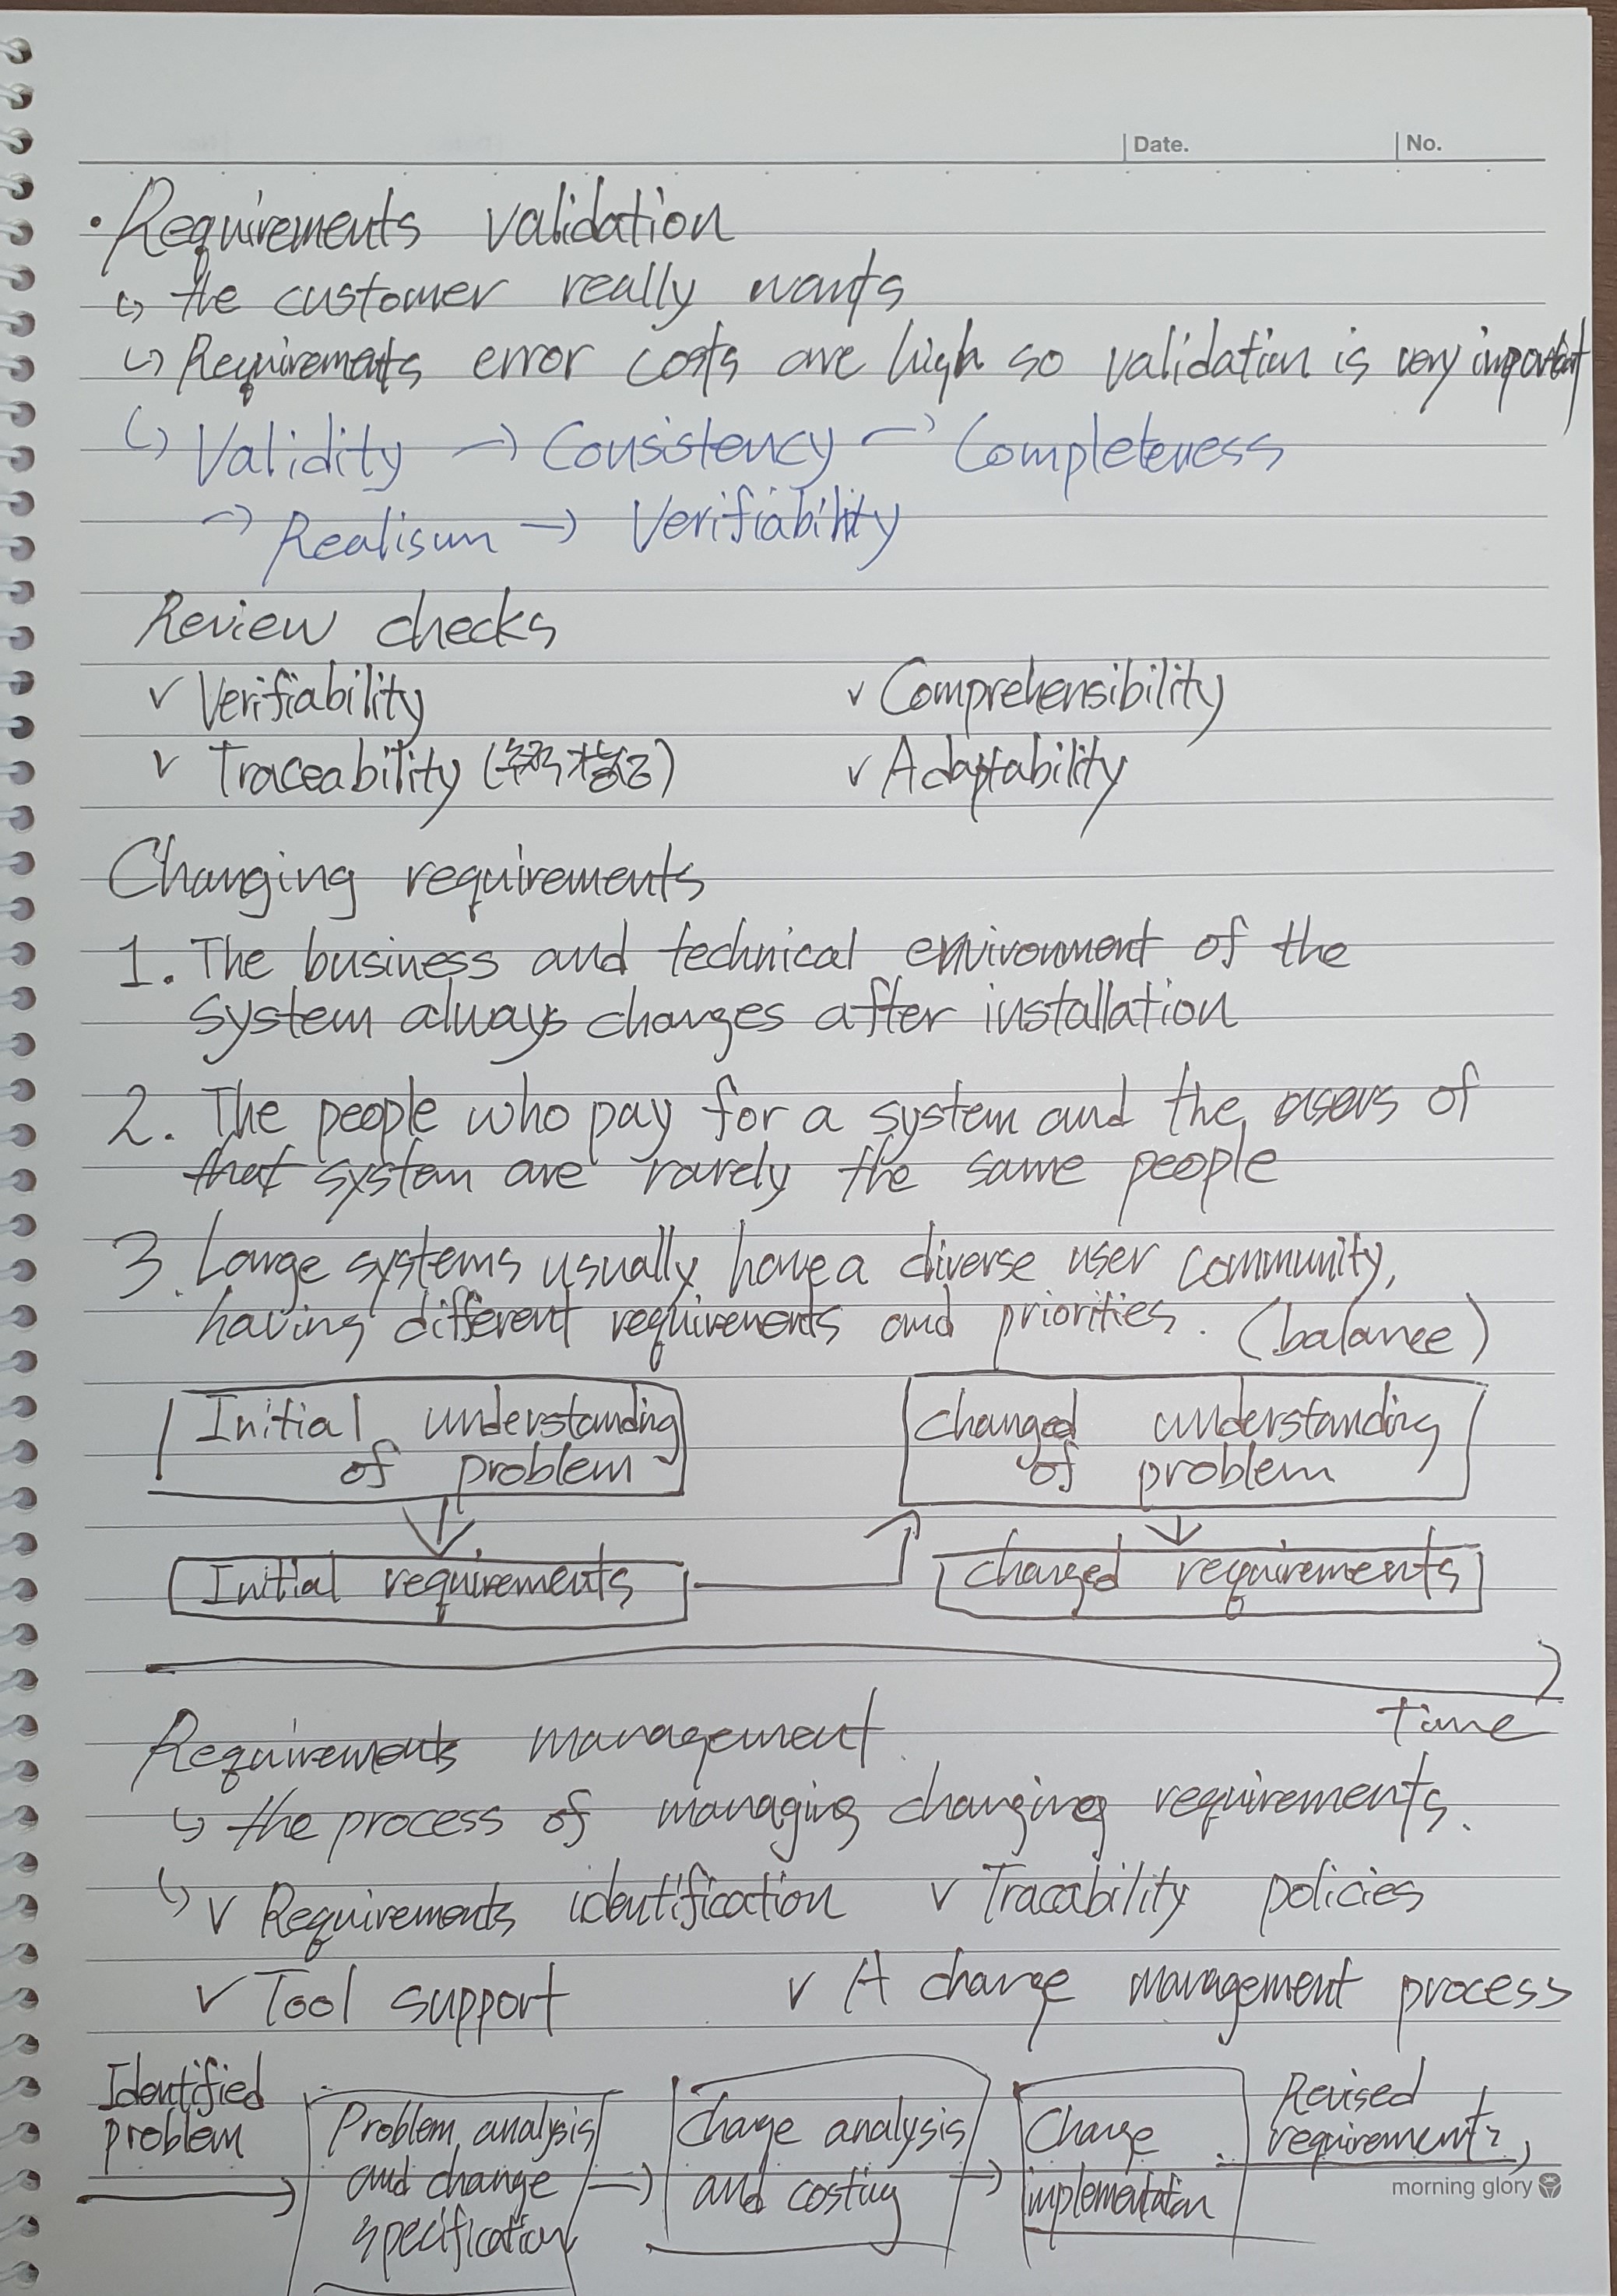 Date. No.
• Requirements validation
↳ the customer really wants
↳ Requirements error costs are high so validation is very important
↳ Validity → Consistency → Completeness
→ Realism → Verifiability
Review checks
v Verifiability v Comprehensibility
v Traceability v Adaptability
Changing requirements
1. The business and technical environment of the
system always changes after installation
2. The people who pay for a system and the users of
that system are rarely the same people
3. Large systems usually have a diverse user community,
having different requirements and priorities. (balance)
Initial understanding
of problem
changed understanding
of problem
Initial requirements
changed requirements
Time
Requirements management
↳ the process of managing changing requirements.
↳ v Requirements identification v Tracability policies
v Tool support v A change management process
Identified
problem
Problem analysis
and change
specification
→
change analysis
and costing
→
Change
implementation
Revised
requirements
morning glory